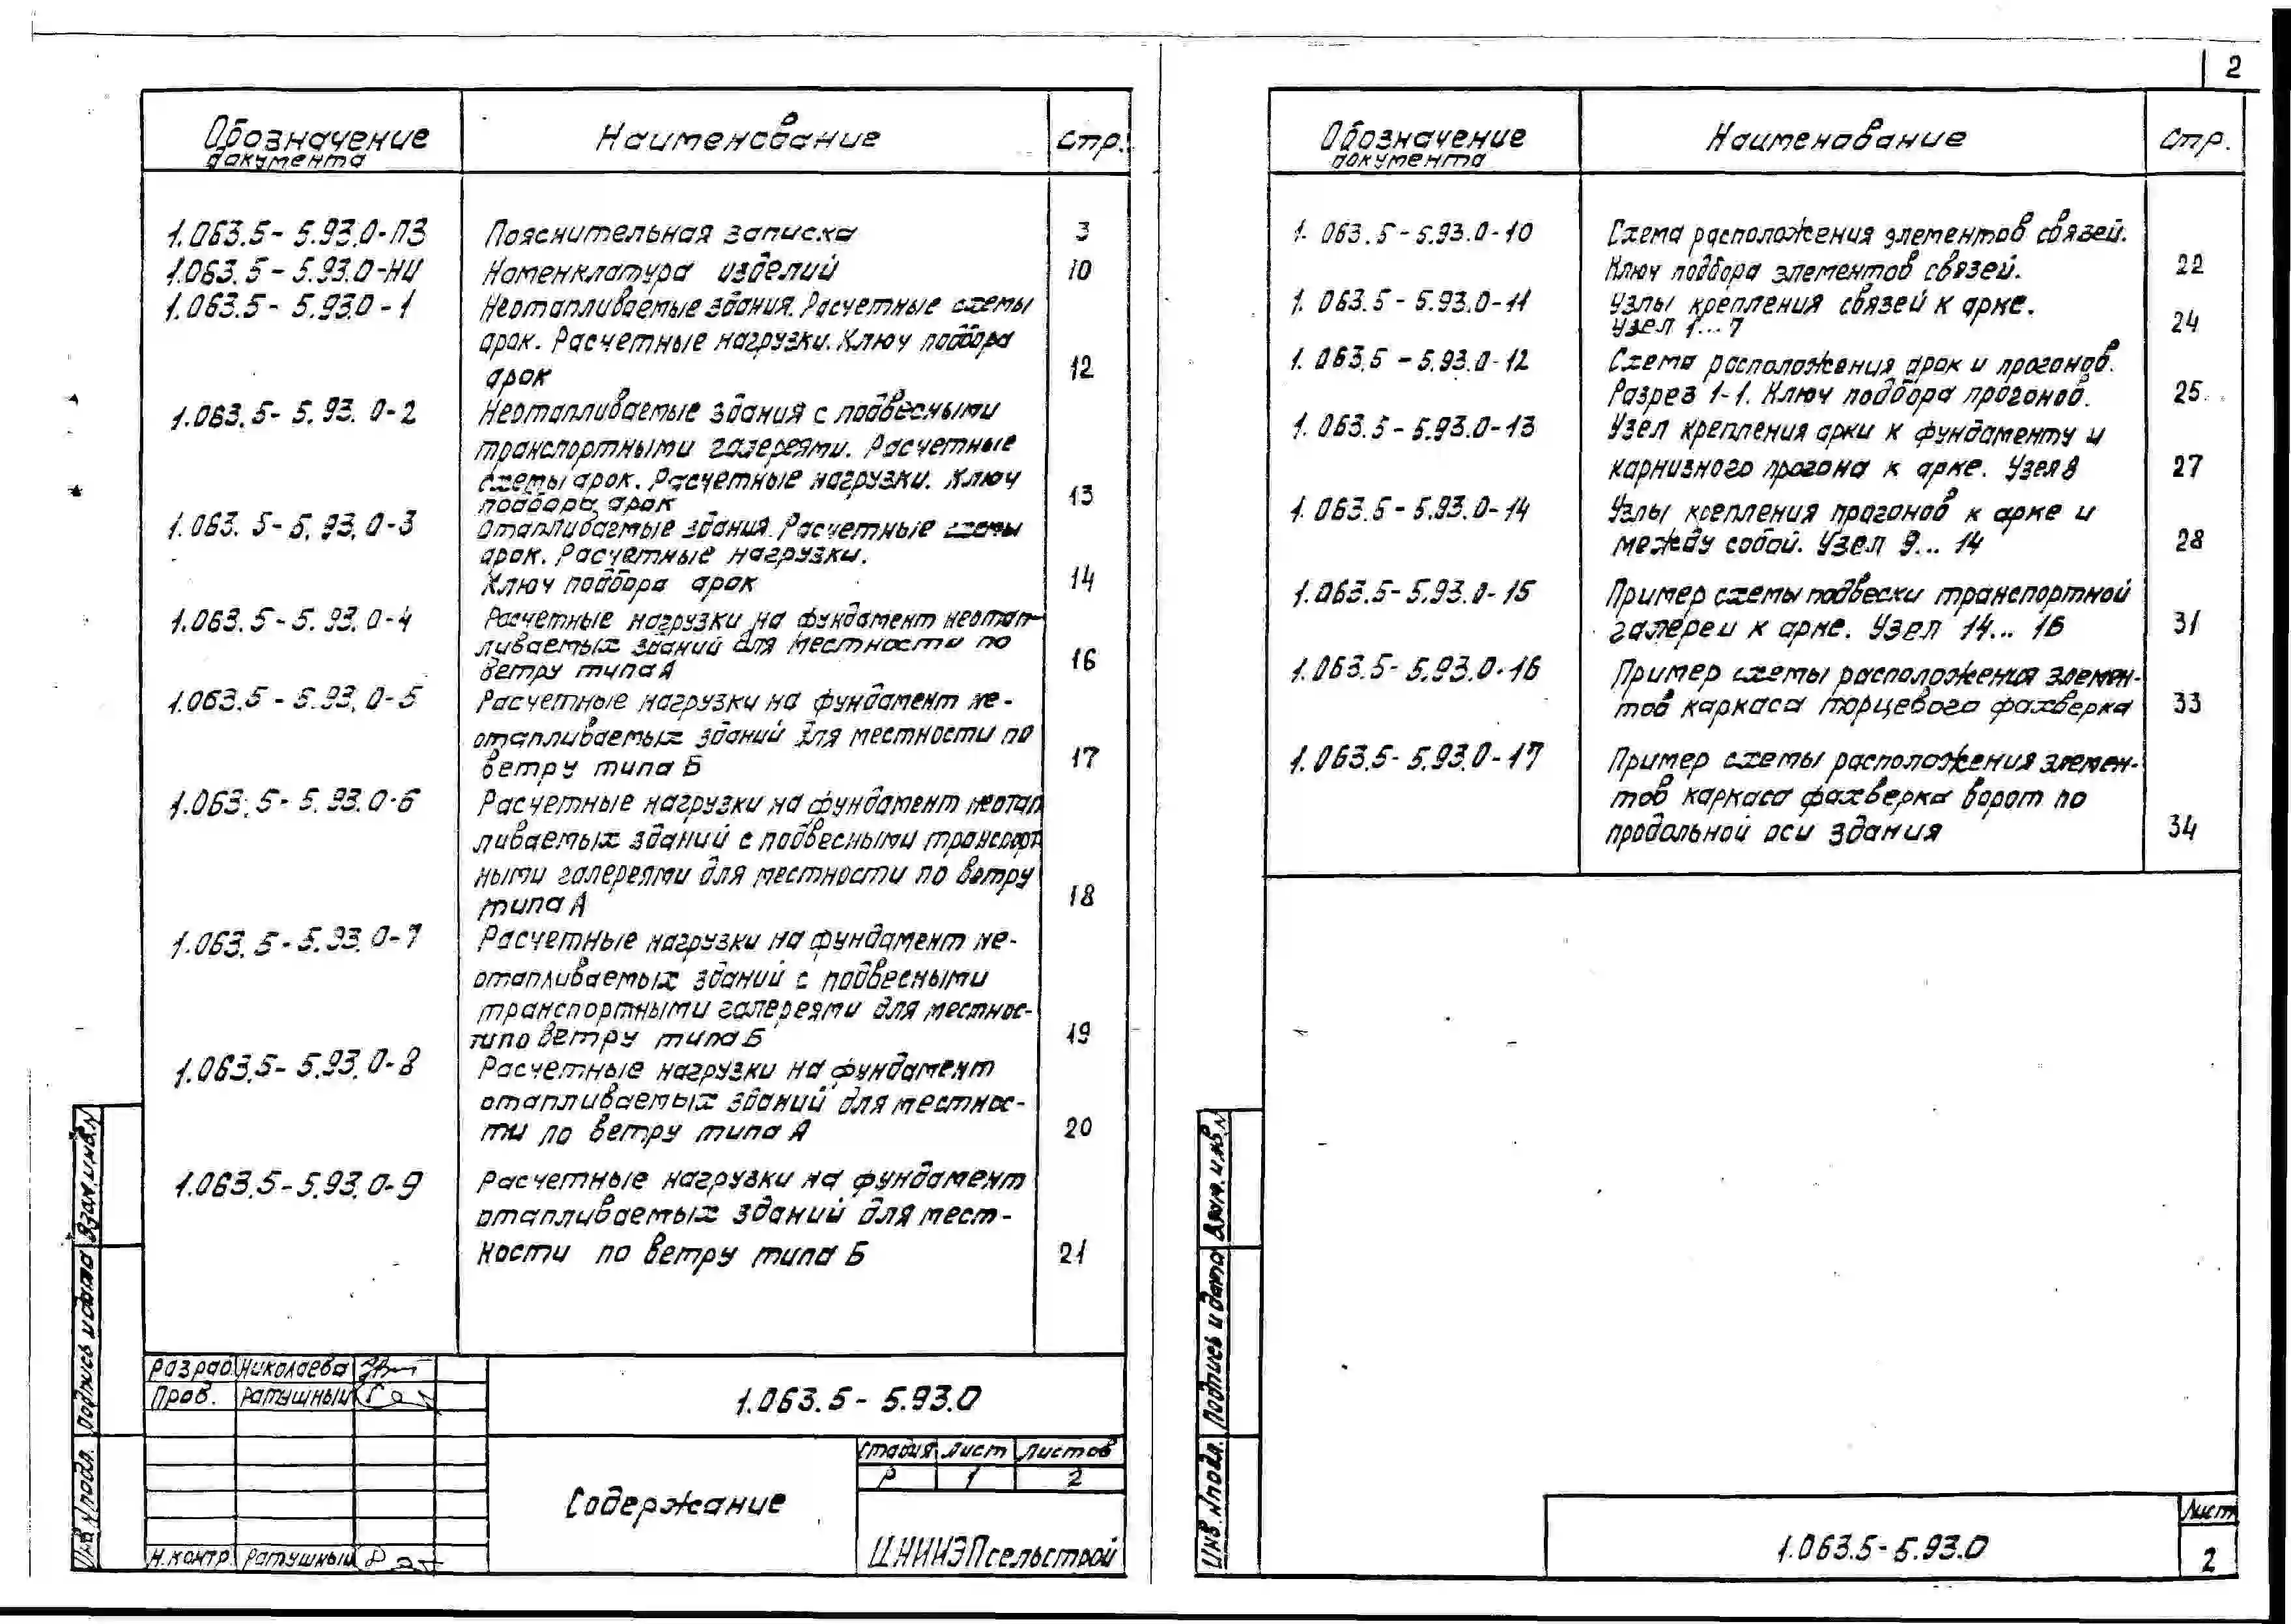 2
Обозначение документа Наименование Стр.
1.063.5-5.93.0-ПЗ Пояснительная записка 3
1.063.5-5.93.0-НИ Номенклатура изделий 10
1.063.5-5.93.0-1 Неотапливаемые здания. Расчетные схемы
арок. Расчетные нагрузки. Ключ подбора
арок 12
1.063.5-5.93.0-2 Неотапливаемые здания с подвесными
транспортными галереями. Расчетные
схемы арок. Расчетные нагрузки. Ключ
подбора арок 13
1.063.5-5.93.0-3 Отапливаемые здания. Расчетные схемы
арок. Расчетные нагрузки.
Ключ подбора арок 14
1.063.5-5.93.0-4 Расчетные нагрузки на фундамент неотап-
ливаемых зданий для местности по
ветру типа А 16
1.063.5-5.93.0-5 Расчетные нагрузки на фундамент не-
отапливаемых зданий для местности по
ветру типа Б 17
1.063.5-5.93.0-6 Расчетные нагрузки на фундамент неотап
ливаемых зданий с подвесными транспорт
ными галереями для местности по ветру
типа А 18
1.063.5-5.93.0-7 Расчетные нагрузки на фундамент не-
отапливаемых зданий с подвесными
транспортными галереями для местнос-
ти по ветру типа Б 19
1.063.5-5.93.0-8 Расчетные нагрузки на фундамент
отапливаемых зданий для местнос-
ти по ветру типа А 20
1.063.5-5.93.0-9 Расчетные нагрузки на фундамент
отапливаемых зданий для мест-
ности по ветру типа Б 21
Разраб. Николаева
Пров. Ратушный
Н.контр. Ратушный
1.063.5-5.93.0
Содержание
Стадия Лист Листов
Р 1 2
ЦНИИЭПсельстрой
Инв. N подл. Подпись и дата Взам. инв. N
Обозначение документа Наименование Стр.
1.063.5-5.93.0-10 Схема расположения элементов связей.
Ключ подбора элементов связей. 22
1.063.5-5.93.0-11 Узлы крепления связей к арке.
Узел 1...7 24
1.063.5-5.93.0-12 Схема расположения арок и прогонов.
Разрез 1-1. Ключ подбора прогонов. 25
1.063.5-5.93.0-13 Узел крепления арки к фундаменту и
карнизного прогона к арке. Узел 8 27
1.063.5-5.93.0-14 Узлы крепления прогонов к арке и
между собой. Узел 9...14 28
1.063.5-5.93.0-15 Пример схемы подвески транспортной
галереи к арке. Узел 14...16 31
1.063.5-5.93.0-16 Пример схемы расположения элемен-
тов каркаса торцевого фахверка 33
1.063.5-5.93.0-17 Пример схемы расположения элемен-
тов каркаса фахверка ворот по
продольной оси здания 34
Инв. N подл. Подпись и дата Взам. инв. N
1.063.5-5.93.0
Лист
2